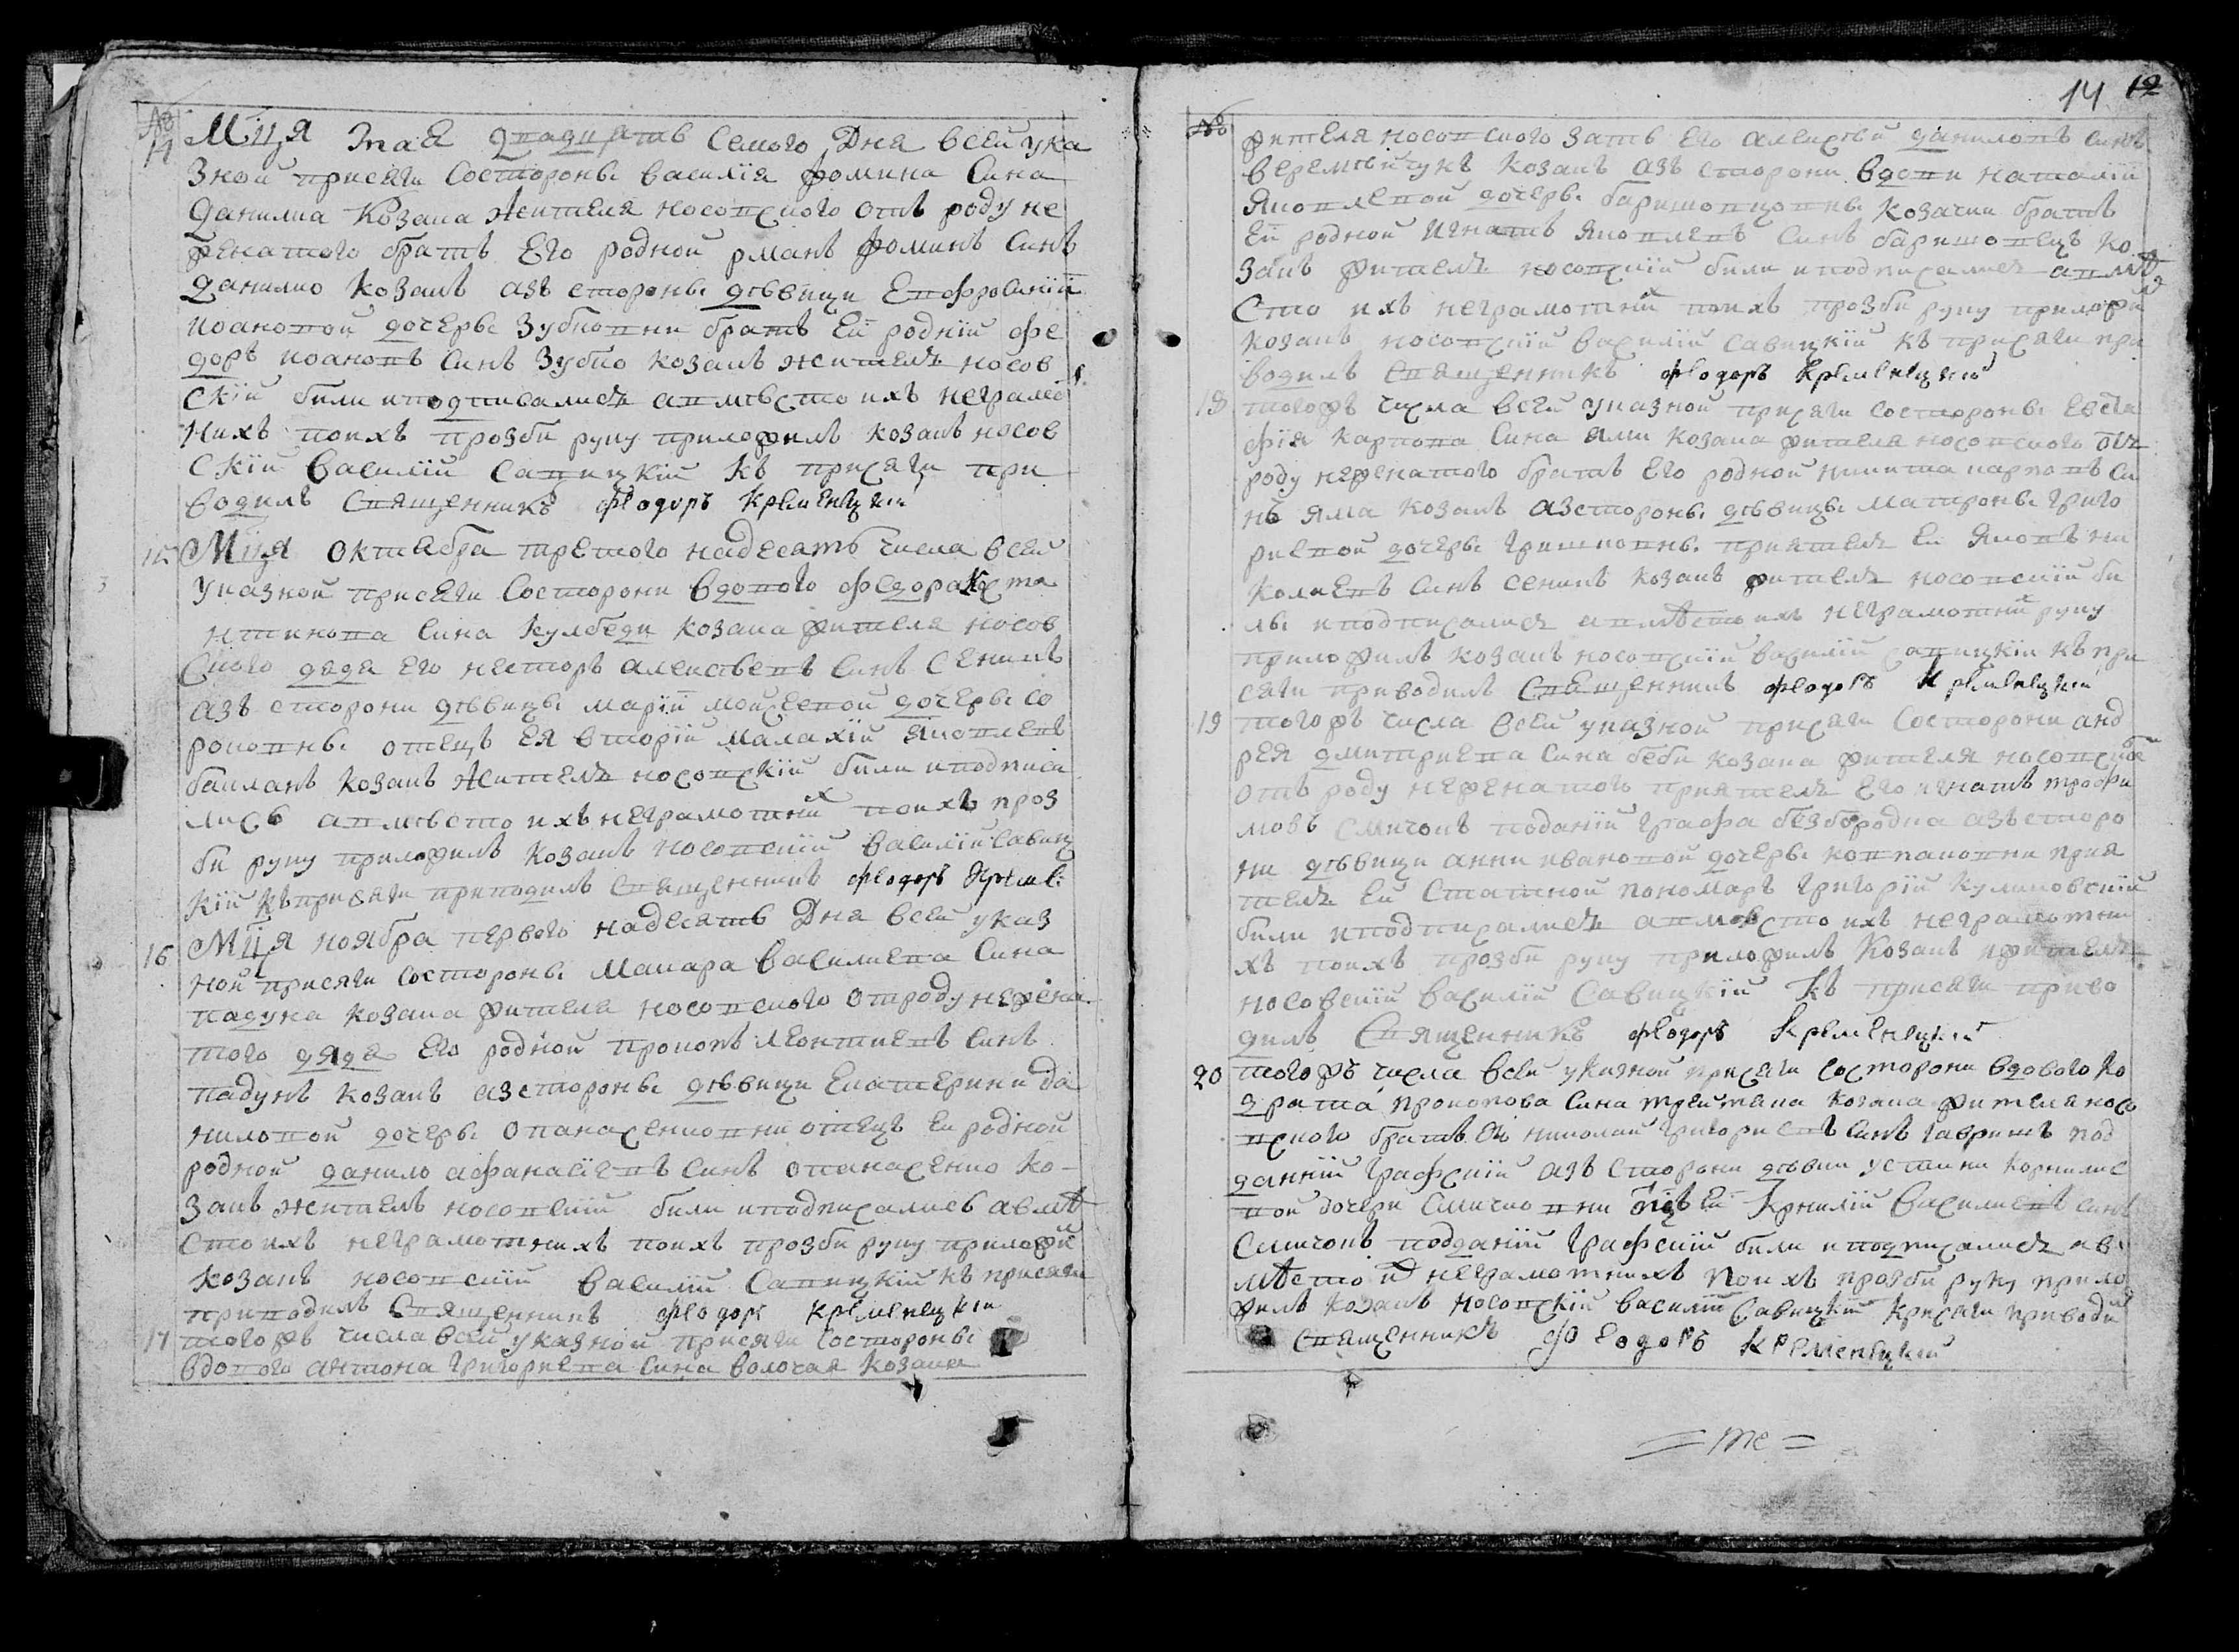 14 12
№
14 Мця мая двадцять семого дня всей ука
зной присяги состороны василія фомина сина
данилка козака жителя носовского отъ роду не
женатого братъ его родной романъ фоминъ синъ
данилко козакъ азъ стороны дѣвици евфросиніи
иоановой дочеры зубковни братъ ей родній фе
доръ иоановъ синъ зубко козакъ жителъ носов
скій били иподписалисъ авмѣсто ихъ неграмо
нихъ поихъ прозби руку приложилъ козакъ носов
скій василій савицкій къ присяги при
водилъ священникъ феодоръ кременецкій
15 Мця октября третого надесять числа всей
указной присяги состорони вдового федора
сина кулбеди козака жителя носов
ского дядя его несторъ алексѣевъ синъ сеникъ
азъ сторони дѣвицы маріи мойсеевой дочеры со
роковны отецъ ея вторій малахій яковлевъ
бакланъ козакъ жителъ носовскій били иподписа
лись авмѣсто ихъ неграмотних поихъ проз
би руку приложилъ козакъ носовскій василій савиц
кій къприсяги приводилъ священникъ феодоръ Креме:
16 Мця ноября первого надесять дня всей указ
ной присяги состороны макара василиева сина
падунa козака жителя носовского отроду нежена
того дядя его родной прокопъ леонтиевъ синъ
падунъ козакъ азстороны дѣвици екатерини да
ниловой дочеры опанасенковни отецъ ей родной
родной данило афанасіевъ синъ опанасенко ко-
закъ жителъ носовскій били иподписались авмѣ
сто ихъ неграмотнихъ поихъ прозби руку приложил
козакъ носовскій василій савицкій къ присяги
приводилъ священникъ феодоръ кременецкій
17 тогожъ числа всей указной присяги состороны
вдового антона григориева сина волочая козака
№ жителя носовского зать его алексѣй даниловъ синъ
веремѣйчукъ козакъ азъ сторони вдови наталіи
яковлевой дочеры баришовцовны козачки братъ
ей родной игнатъ яковлевъ синъ баришовецъ ко
закъ жителъ носовскій били иподписалисъ авмѣ
сто ихъ неграмотних поихъ прозби руку приложил
козакъ носовскій василій савицкій къ присяги при
водилъ священникъ феодоръ кременецкій
18 тогожъ числа всей указной присяги состороны евста
фія карпова сина ями козака жителя носовского отъ
роду неженатого братъ его родной никита карповъ си
нъ яма козакъ азстороны дѣвицы матроны григо
риевой дочеры гришковны приятель ей яковъ ни
колаевъ синъ сеникъ козакъ жителъ носовскій би
лы иподписалисъ авмѣсто ихъ неграмотних руку
приложилъ козакъ носовскій василій савицкій къ при
сяги приводилъ священникъ феодоръ кременецкій
19 тогожъ числа всей указной присяги состорони анд
рея дмитриева сина беби козака жителя носовского
отъ роду неженатого приятель его игнатъ трофи
мовъ смичокъ поданій графа безбородка азъ сторо
ни дѣвици анни ивановой дочеры ковпаковни прия
тель ей статной пономаръ григорій кулиновскій
били иподписалисъ авмѣсто ихъ неграмотни
хъ поихъ прозби руку приложилъ козакъ жителъ
носовскій василій савицкій къ присяги приво
дилъ священникъ феодоръ кременецкій
20 тогожъ числа всей указной присяги состорони вдового ко
драта прокопова сина козака жителя носо
вского братъ его николай григориевъ синъ гавришъ под
данній графскій азъ сторони дѣвки устини корнилие
вой дочери смичковни отцъ ей корнилій василиевъ синъ
смичокъ подданій графскій били иподписалисъ ав
мѣсто их неграмотнихъ поихъ прозби руку прило
жилъ козакъ носовскій василій савицкій крисяги приводил
священникъ феодоръ кременецкий